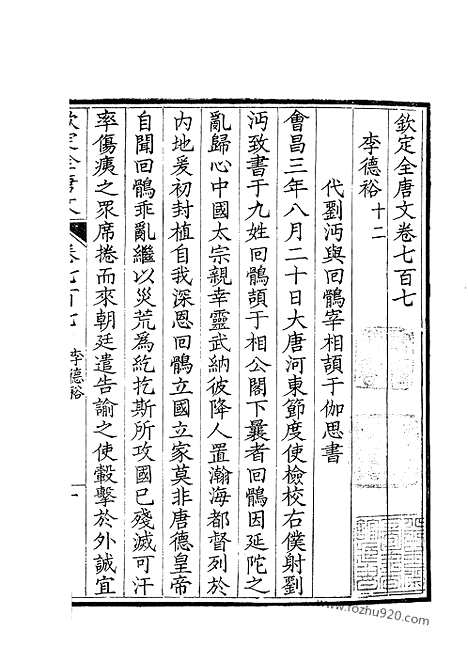 欽定全唐文卷七百七
李德裕十二
代劉沔與回鶻宰相頡于伽思書
會昌三年八月二十日大唐河東節度使檢校右僕射劉
沔致書于九姓回鶻頡于相公閣下曩者回鶻因延陀之
亂歸心中國太宗親幸靈武納彼降人置瀚海都督列於
內地爰初封植自我深恩回鶻立國立家莫非唐德皇帝
自聞回鶻乖亂繼以災荒為紇扢斯所攻國已殘滅可汗
率傷痍之眾席捲而來朝廷遣告諭之使轂擊於外誠宜
欽定全唐文
卷七百七
李德裕
一
www.fozhu920.com